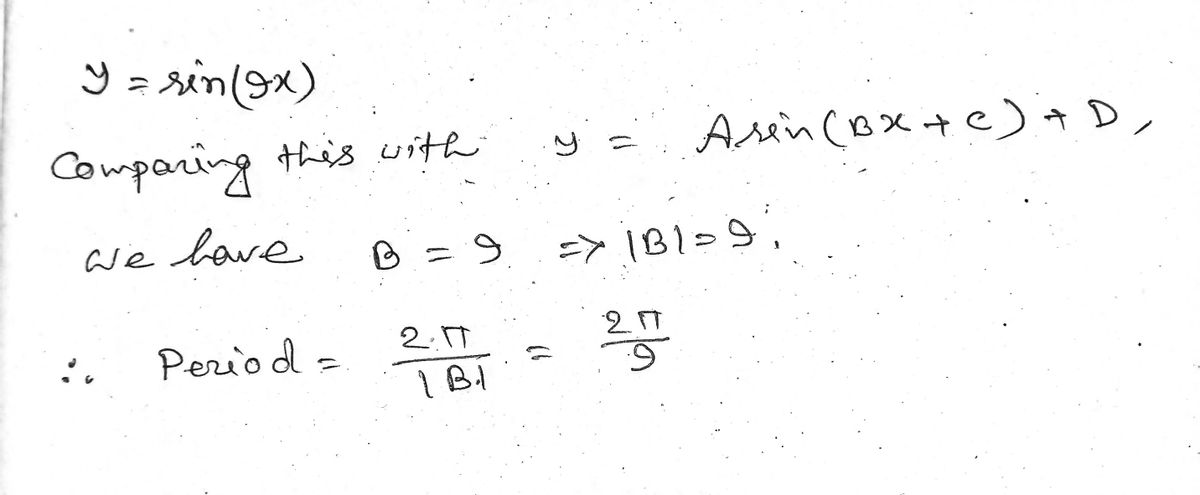 y = sin(9x)
Comparing this with y = A sin(Bx + c) + D,
we have B = 9 => |B| = 9.
∴ Period = 2π/|B| = 2π/9